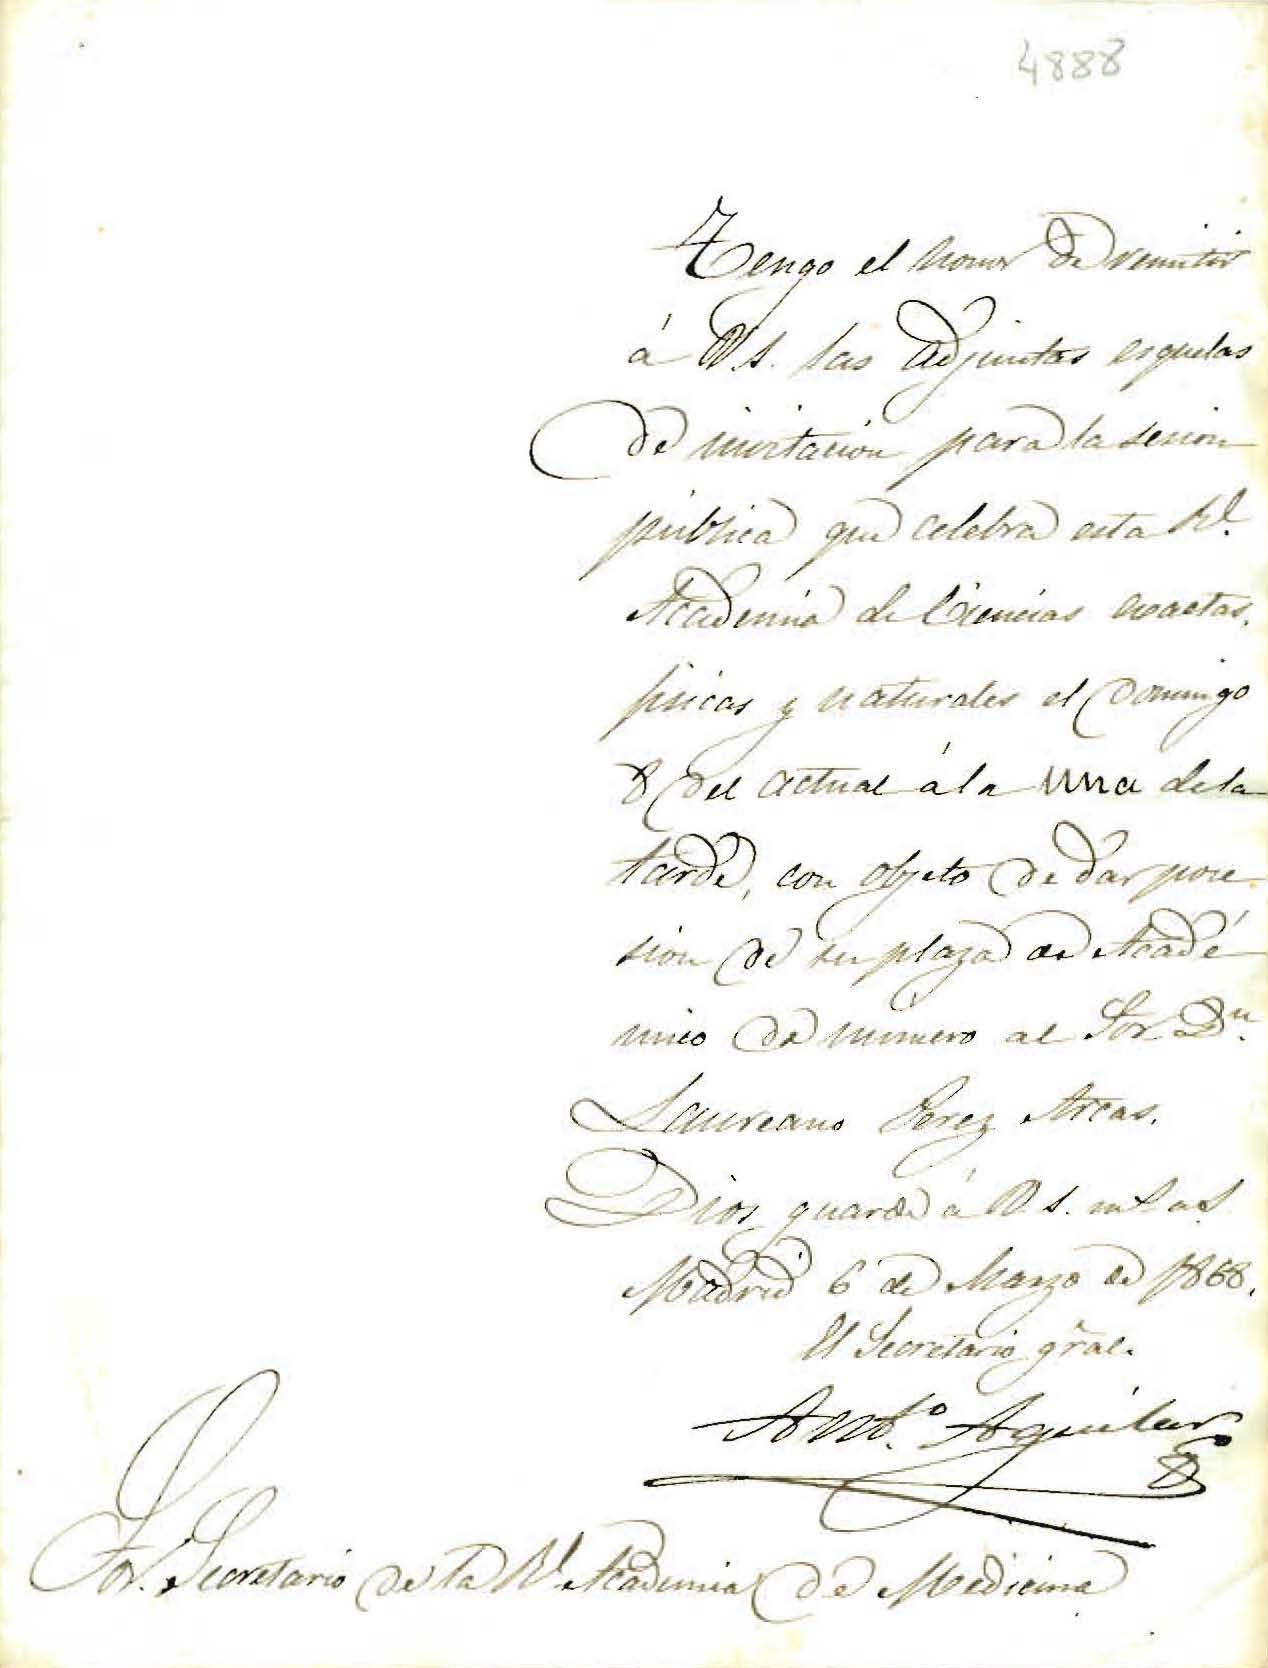 4888
Tengo el honor de remitir
á V.S. las adjuntas esquelas
de invitacion para la sesion
pública que celebra esta Rl.
Academia de Ciencias exactas,
fisicas y naturales el Domingo
8 del actual á la una de la
tarde, con objeto de dar pose
sion de su plaza de Acadé
mico de numero al Sor. Dn.
Laureano Perez Arcas.
Dios guarde á V.S. ms. as.
Madrid 6 de Marzo de 1868.
El Secretario gral.
Anto. Aguilar
Sor. Secretario de la Rl. Academia de Medicina